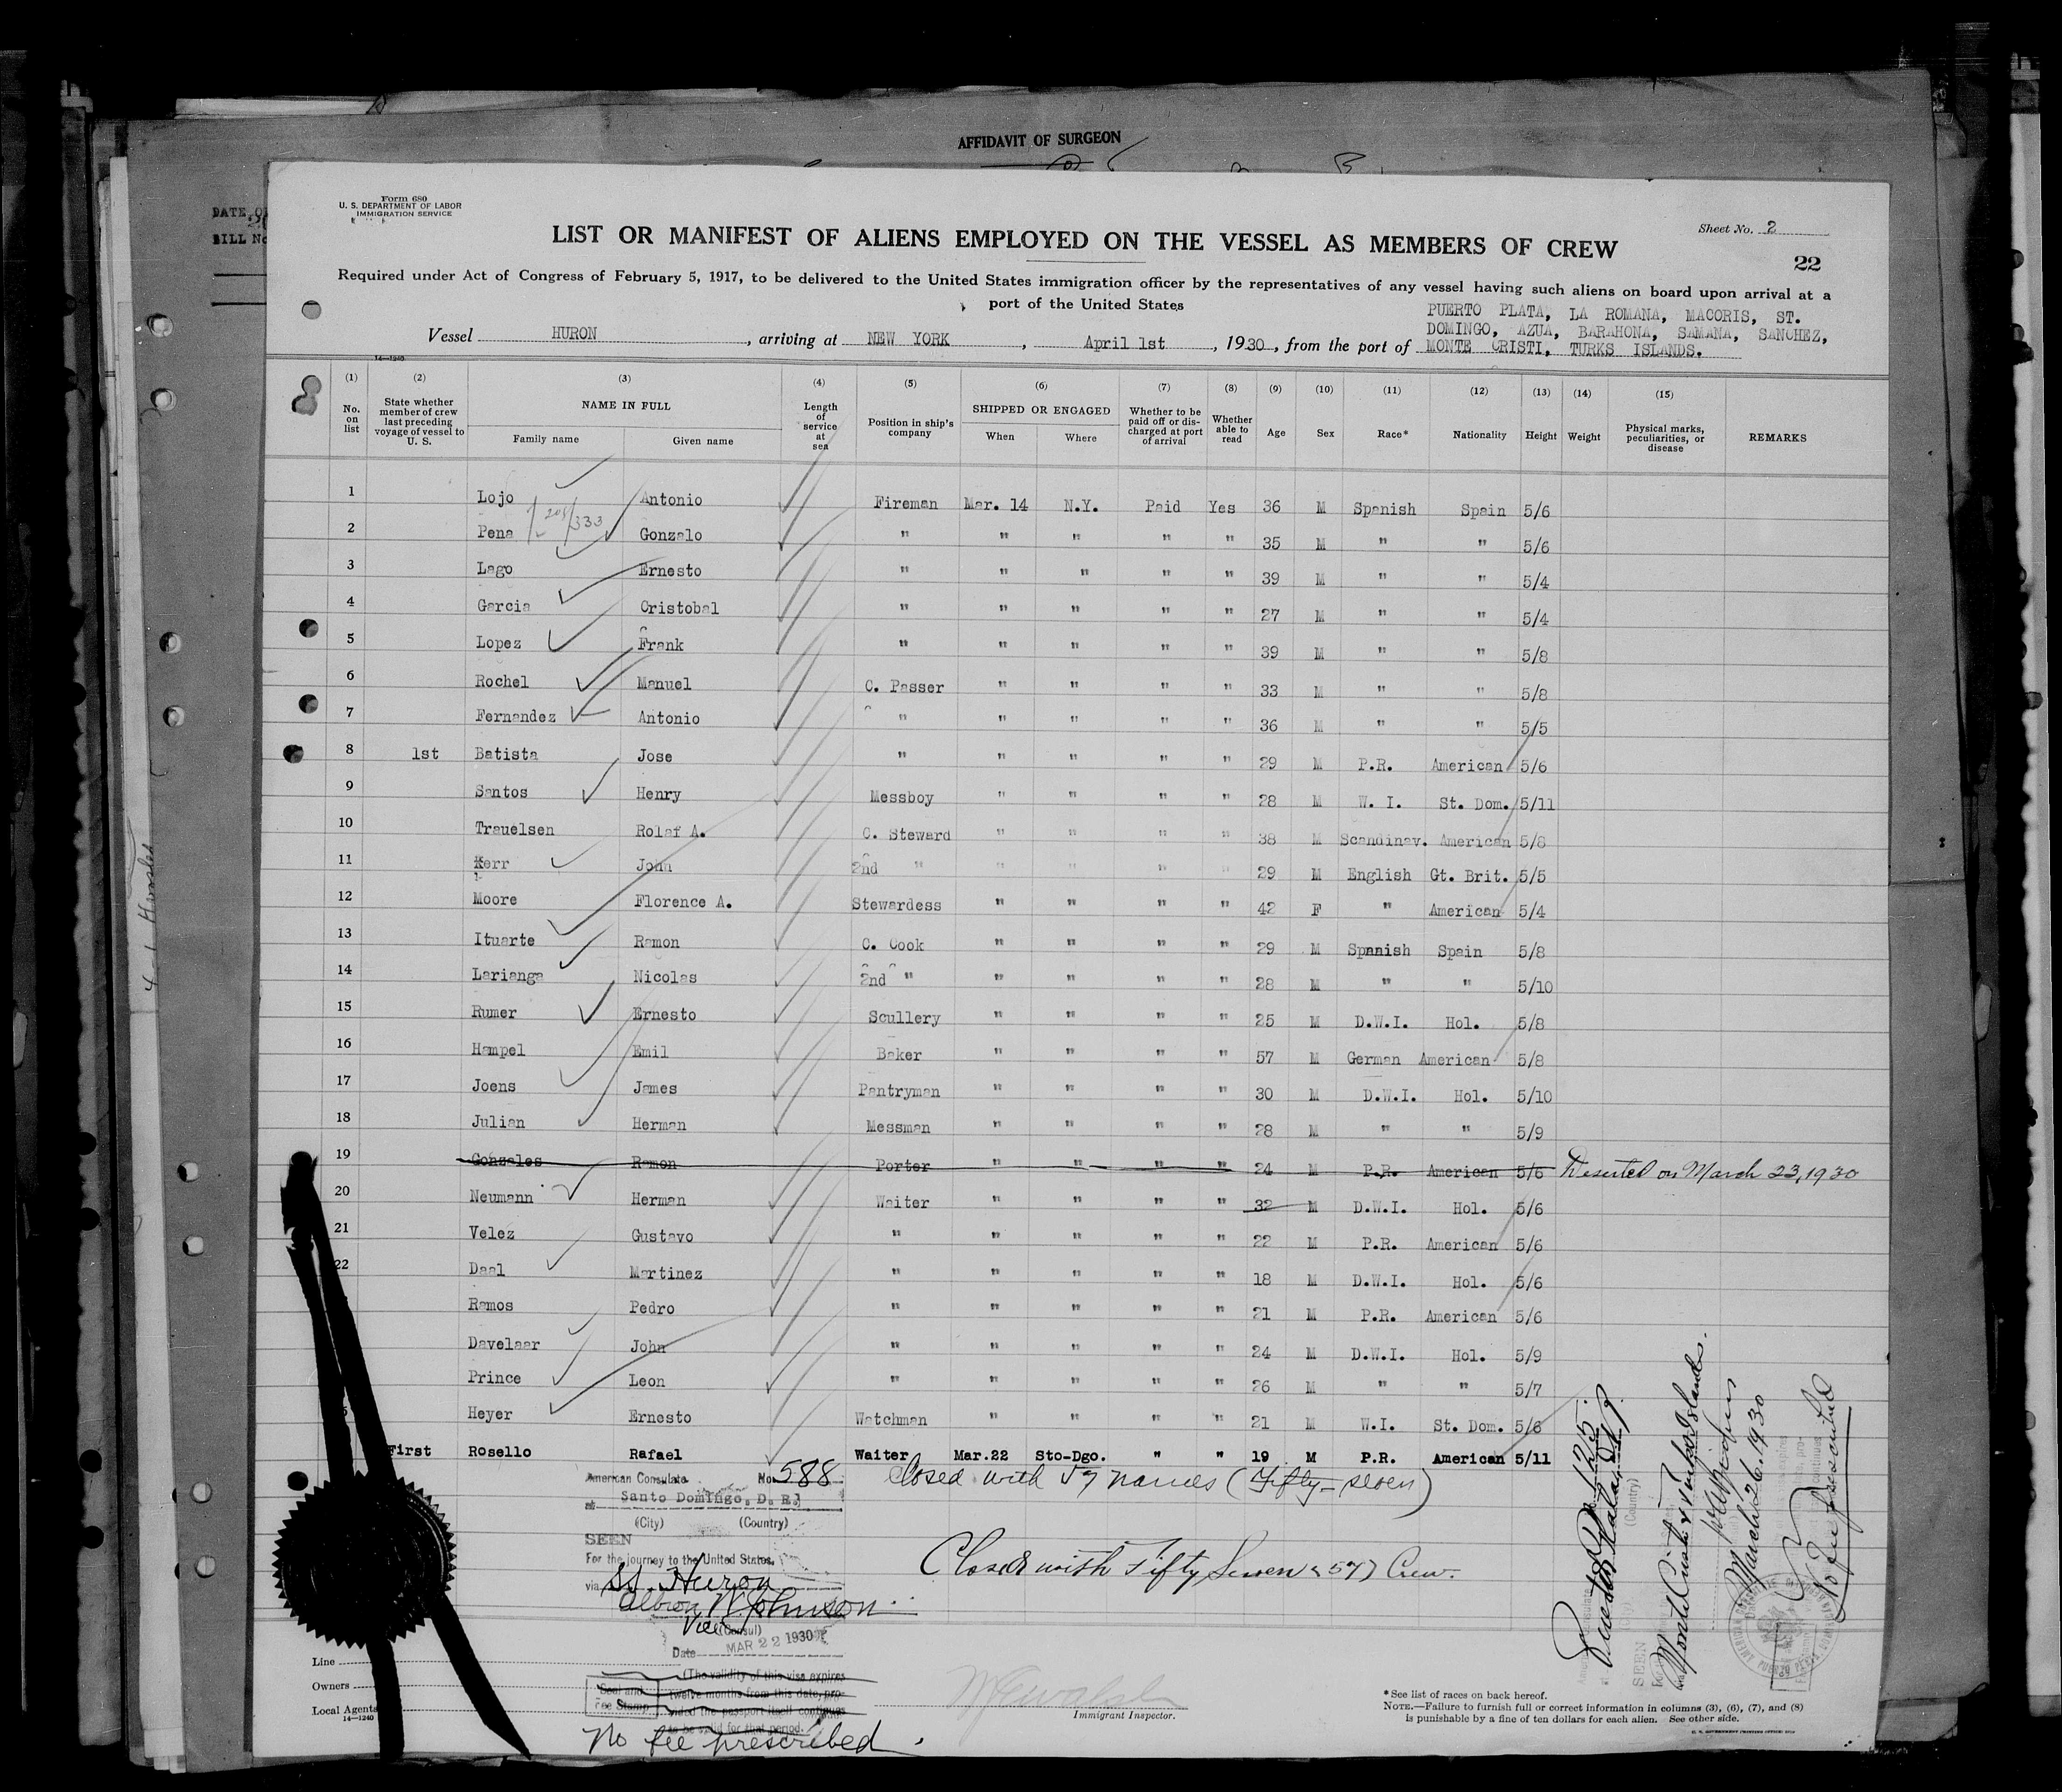 AFFIDAVIT OF SURGEON
Form 680
U. S. DEPARTMENT OF LABOR
IMMIGRATION SERVICE
DATE O
BILL No
Sheet No. 2
LIST OR MANIFEST OF ALIENS EMPLOYED ON THE VESSEL AS MEMBERS OF CREW
22
Required under Act of Congress of February 5, 1917, to be delivered to the United States immigration officer by the representatives of any vessel having such aliens on board upon arrival at a
port of the United States
PUERTO PLATA, LA ROMANA, MACORIS, ST.
DOMINGO, AZUA, BARAHONA, SAMANA, SANCHEZ,
Vessel HURON, arriving at NEW YORK, April 1st, 1930, from the port of MONTE CRISTI, TURKS ISLANDS.
14-1240
(1) (2) (3) (4) (5) (6) (7) (8) (9) (10) (11) (12) (13) (14) (15)
No. on list State whether member of crew last preceding voyage of vessel to U. S. NAME IN FULL Family name Given name Length of service at sea Position in ship's company SHIPPED OR ENGAGED When Where Whether to be paid off or discharged at port of arrival Whether able to read Age Sex Race* Nationality Height Weight Physical marks, peculiarities, or disease REMARKS
1 Lojo Antonio Fireman Mar. 14 N.Y. Paid Yes 36 M Spanish Spain 5/6
2 Pena 333 Gonzalo " " " " " 35 M " " 5/6
3 Lago Ernesto " " " " " 39 M " " 5/4
4 Garcia Cristobal " " " " " 27 M " " 5/4
5 Lopez Frank " " " " " 39 M " " 5/8
6 Rochel Manuel C. Passer " " " " 33 M " " 5/8
7 Fernandez Antonio " " " " " 36 M " " 5/5
8 1st Batista Jose " " " " " 29 M P.R. American 5/6
9 Santos Henry Messboy " " " " 28 M W. I. St. Dom. 5/11
10 Trauelsen Rolaf A. C. Steward " " " " 38 M Scandinav. American 5/8
11 Kerr John 2nd " " " " " 29 M English Gt. Brit. 5/5
12 Moore Florence A. Stewardess " " " " 42 F " American 5/4
13 Ituarte Ramon C. Cook " " " " 29 M Spanish Spain 5/8
14 Larianga Nicolas 2nd " " " " " 28 M " " 5/10
15 Rumer Ernesto Scullery " " " " 25 M D.W.I. Hol. 5/8
16 Hampel Emil Baker " " " " 57 M German American 5/8
17 Joens James Pantryman " " " " 30 M D.W.I. Hol. 5/10
18 Julian Herman Messman " " " " 28 M " " 5/9
19 Gonzales Ramon Porter " " " " 24 M P.R. American 5/6 Deserted on March 23, 1930
20 Neumann Herman Waiter " " " " 32 M D.W.I. Hol. 5/6
21 Velez Gustavo " " " " " 22 M P.R. American 5/6
22 Daal Martinez " " " " " 18 M D.W.I. Hol. 5/6
Ramos Pedro " " " " " 21 M P.R. American 5/6
Davelaar John " " " " " 24 M D.W.I. Hol. 5/9
Prince Leon " " " " " 26 M " " 5/7
Heyer Ernesto Watchman " " " " 21 M W.I. St. Dom. 5/6
First Rosello Rafael Waiter Mar.22 Sto-Dgo. " " 19 M P.R. American 5/11
American Consulate No. 588
Closed with 57 names (Fifty-seven)
at Santo Domingo, D. R.
(City) (Country)
SEEN
For the journey to the United States,
via SS. Huron
Closed with Fifty Seven (57) Crew.
Johnson
Vice (Consul)
Date MAR 22 1930
(The validity of this visa expires
twelve months from this date, pro-
vided the passport itself continues
to be valid for that period.
Seal and
Fee Stamp
No fee prescribed.
Puerto Plata, D.R.
(Country)
SEEN
Monte Cristi & Turks Islands.
March 26, 1930
No fee prescribed
Line
Owners
Local Agents
14-1240
Immigrant Inspector.
*See list of races on back hereof.
NOTE.—Failure to furnish full or correct information in columns (3), (6), (7), and (8)
is punishable by a fine of ten dollars for each alien. See other side.